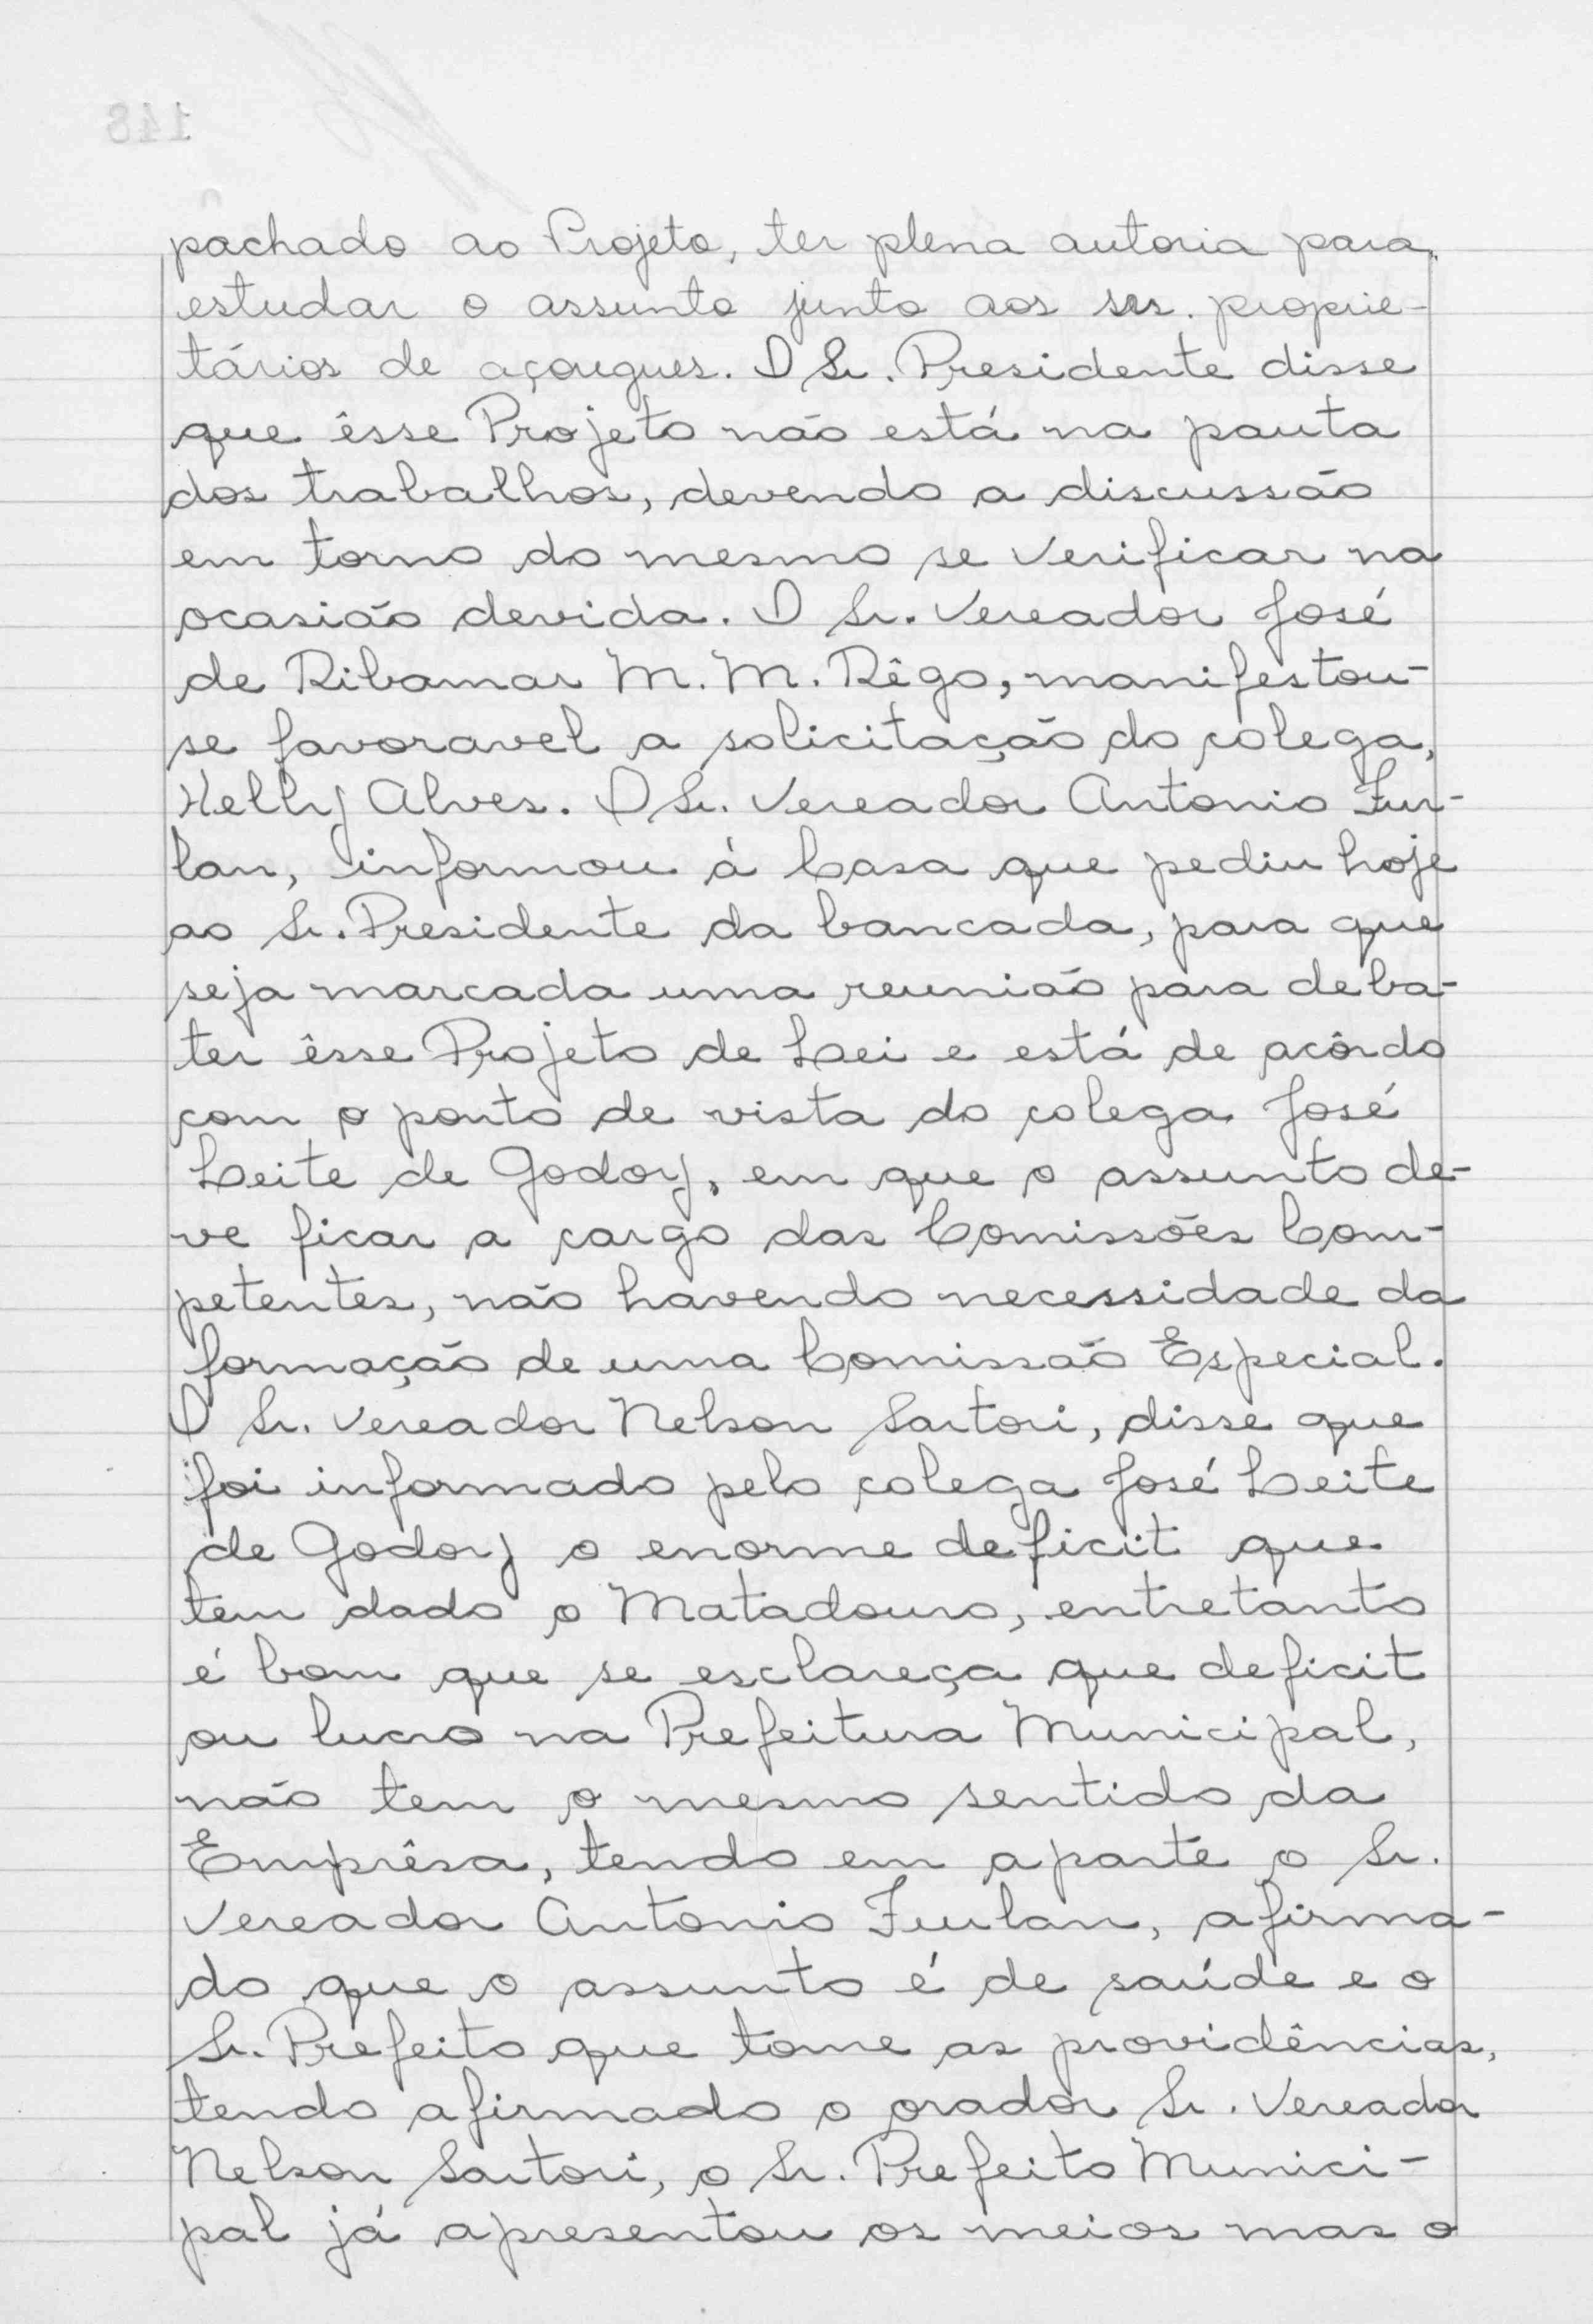 pachado ao Projeto, ter plena autoria para
estudar o assunto junto aos srs. proprie-
tários de açougues. O Sr. Presidente disse
que êsse Projeto não está na pauta
dos trabalhos, devendo a discussão
em torno do mesmo se verificar na
ocasião devida. O Sr. Vereador José
de Ribamar M. M. Rêgo, manifestou-
se favoravel a solicitação do colega,
Kelly Alves. O Sr. Vereador Antonio Fur-
lan, informou á Casa que pediu hoje
ao Sr. Presidente da bancada, para que
seja marcada uma reunião para deba-
ter êsse Projeto de Lei e está de acôrdo
com o ponto de vista do colega José
Leite de Godoy, em que o assunto de-
ve ficar a cargo das Comissões Com-
petentes, não havendo necessidade da
formação de uma Comissão Especial.
O Sr. Vereador Nelson Sartori, disse que
foi informado pelo colega José Leite
de Godoy o enorme deficit que
tem dado o Matadouro, entretanto
é bom que se esclareça que deficit
ou lucro na Prefeitura Municipal,
não tem o mesmo sentido da
Emprêsa, tendo em aparte o Sr.
Vereador Antonio Furlan, afirma-
do que o assunto é de saúde e o
Sr. Prefeito que tome as providências,
tendo afirmado o orador Sr. Vereador
Nelson Sartori, o Sr. Prefeito Munici-
pal já apresentou os meios mas o